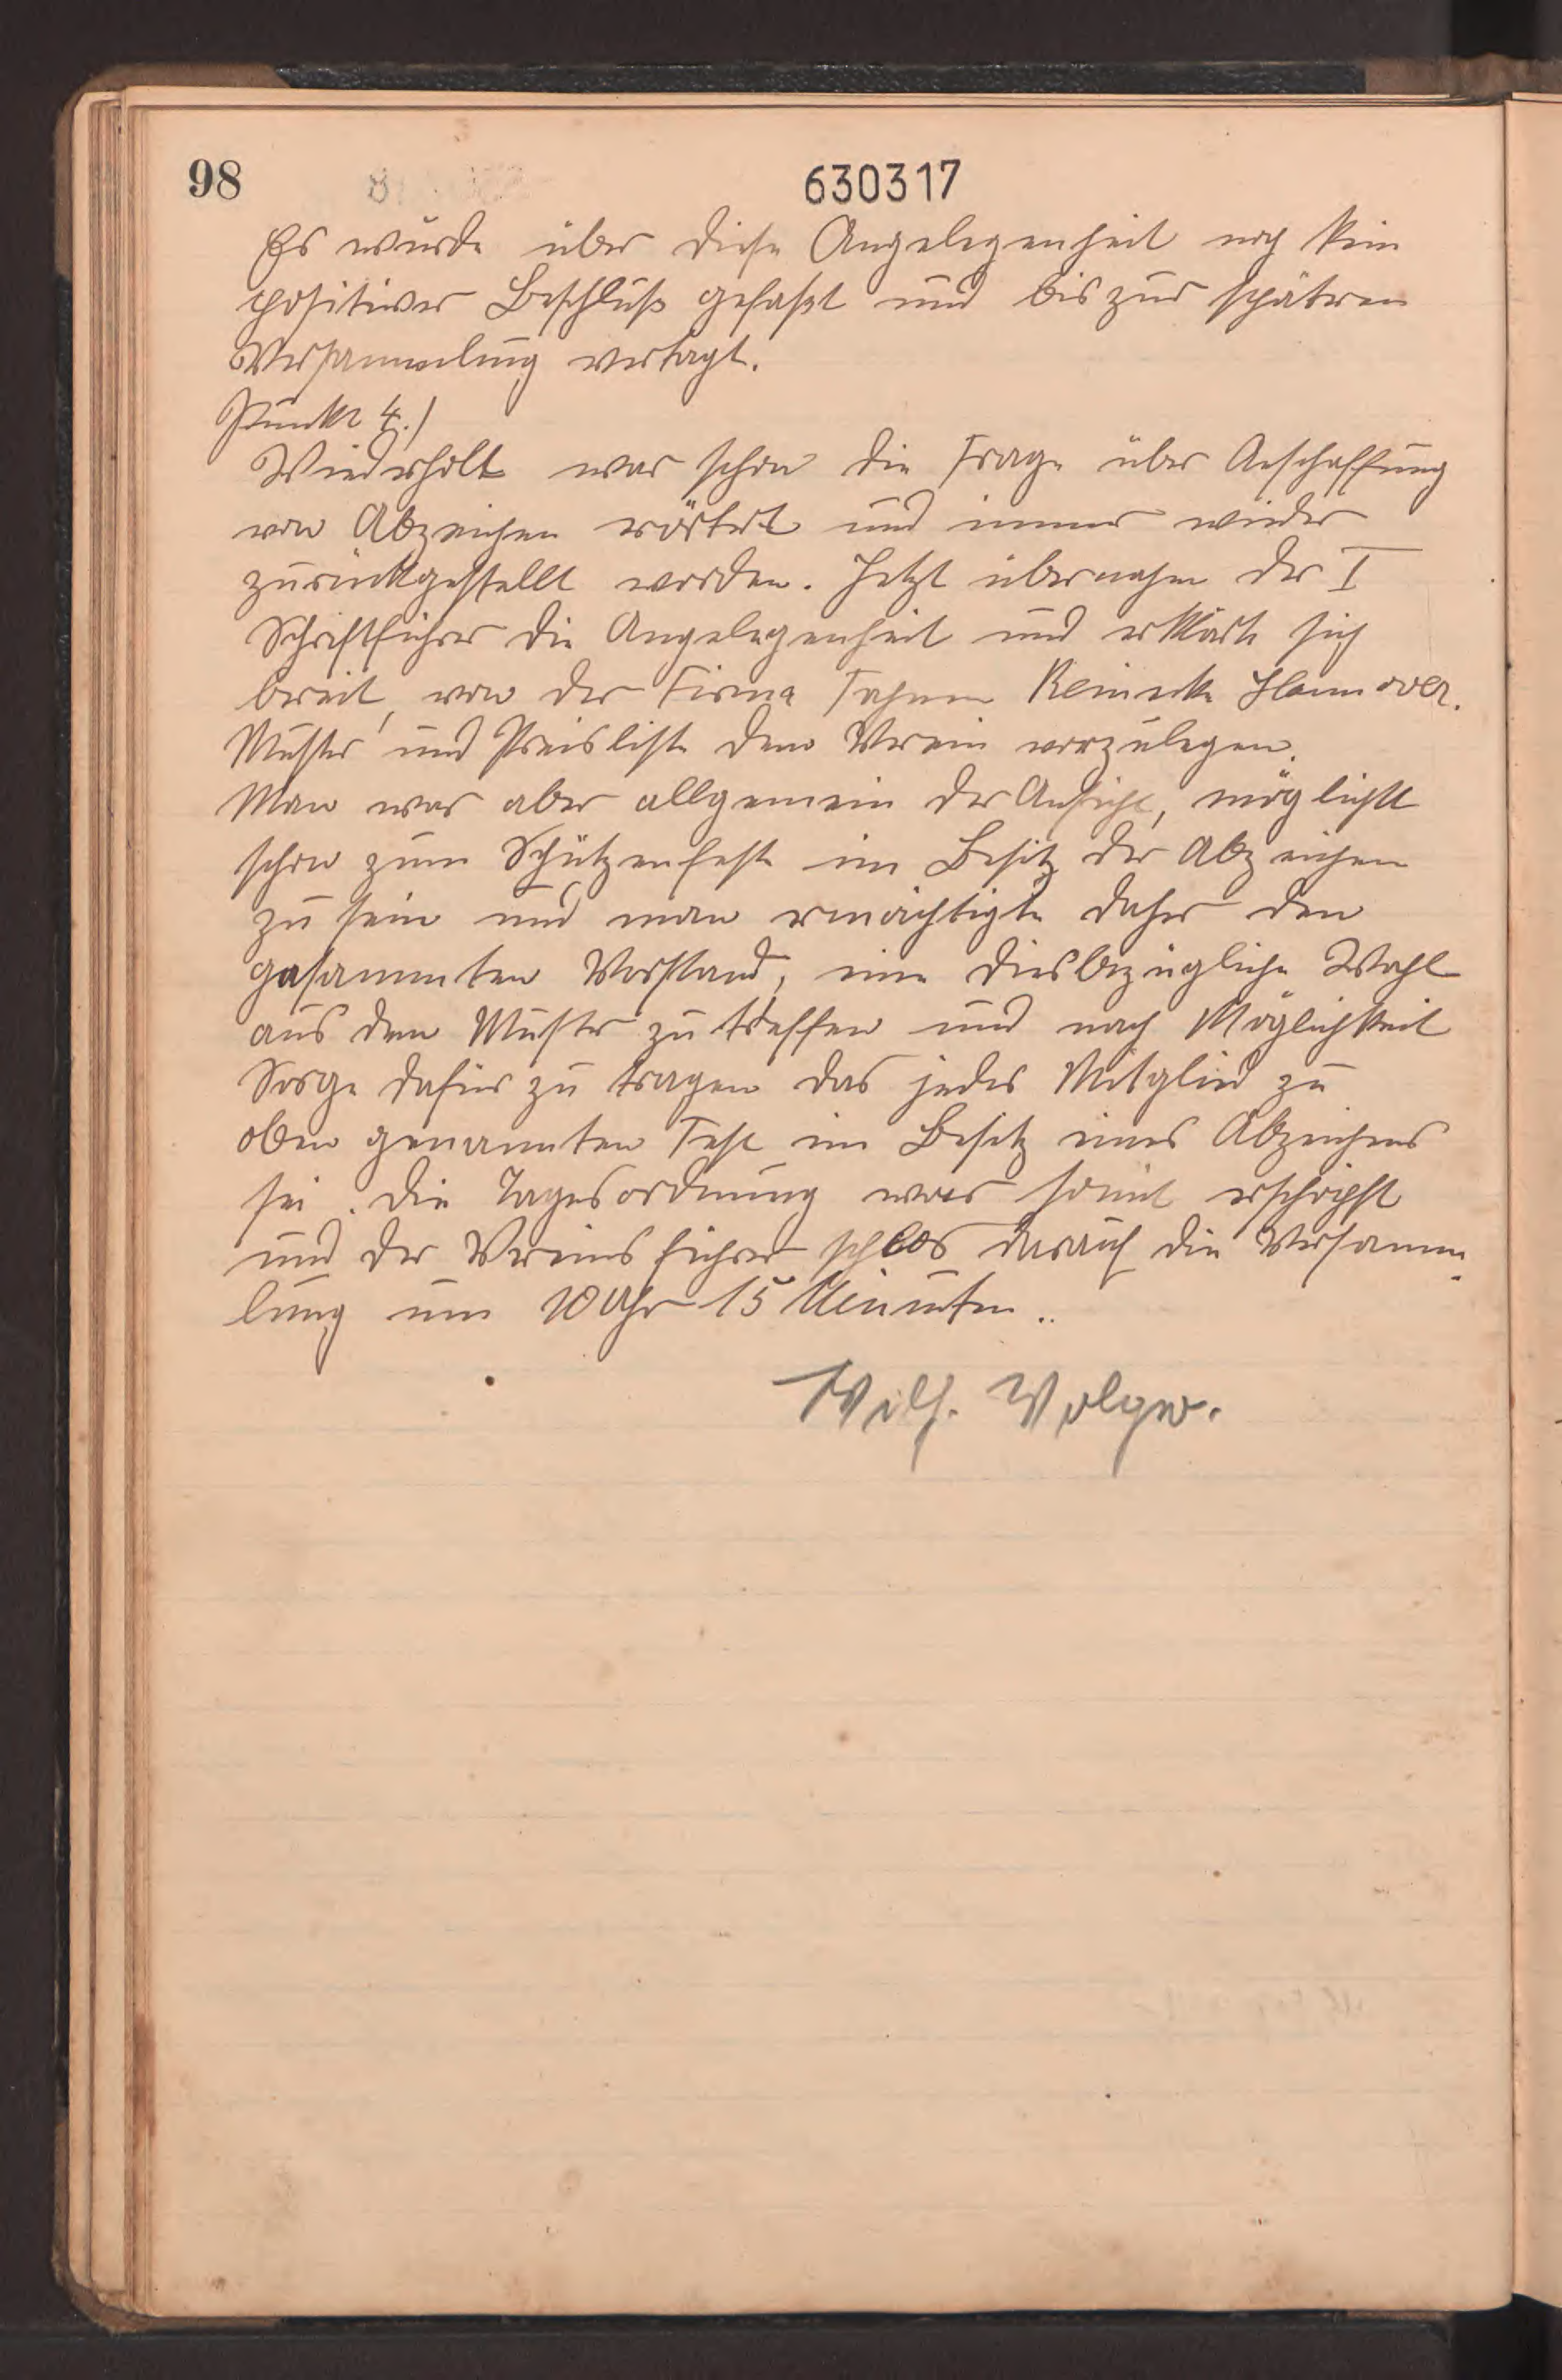 98
630317
Es wurde über diese Angelegenheit noch kein
positiver Beschluß gefaßt und bis zur spätren
Versammlung vertagt.
Punkt 4.)
Wiederholt war schon die Frage über Aschaffung
von Abzeichen erörtert und immer wieder
zurückgestellt worden. Jetzt übernahm der I
Schriftführer die Angelegenheit und erklärte sich
bereit, von der Firma Fahnen Reinecke Hannover.
Muster und Preisliste dem Verein vorzulegen.
Man war aber allgemein der Ansicht, möglichst
schon zum Schützenfeste im Besitz der Abzeichen
zu sein und man ermächtigte daher den
gesammten Vorstand, eine diesbezügliche Wahl
aus dem Muster zu treffen und nach Möglichkeit
Sorge dafür zu tragen das jedes Mitglied zu
oben genannten Fest im Besitz eines Abzeichens
sei. Die Tagesordnung war somit erschöpft
und der Vereinsführer schlos darauf die Versamm-
lung um 10 Uhr 15 Minuten..
Wilh. Volger.